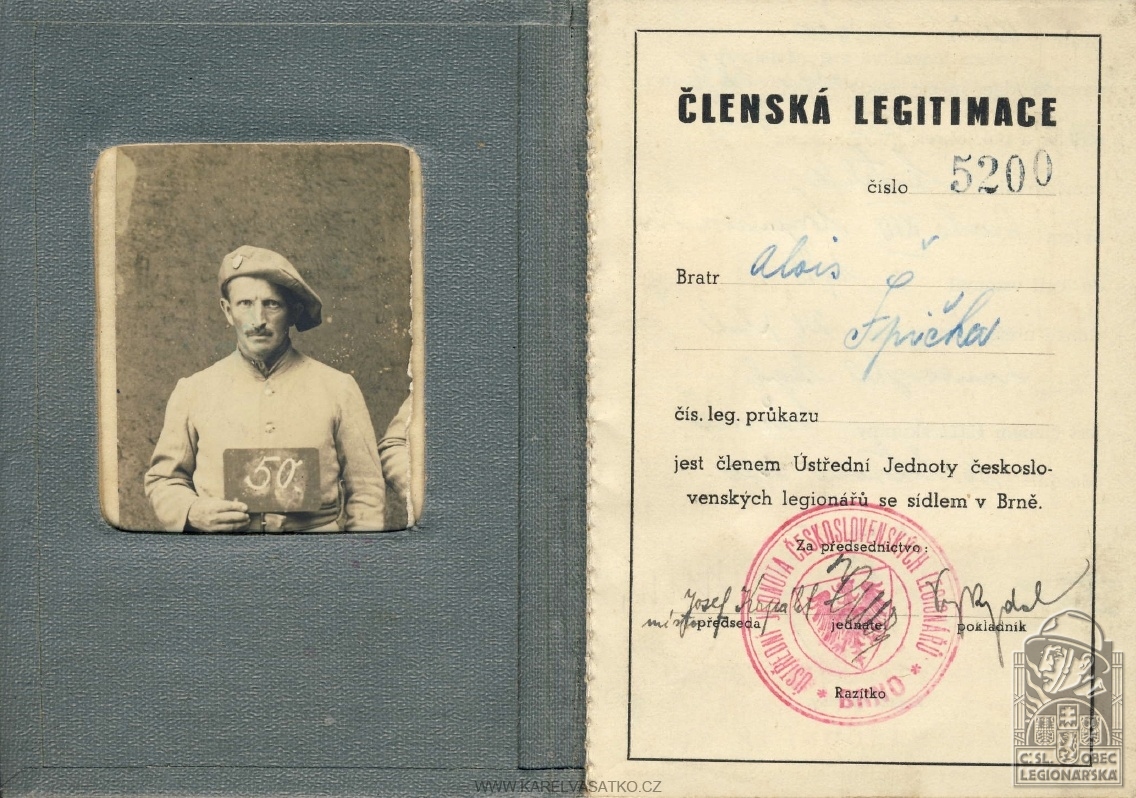 50.
ČLENSKÁ LEGITIMACE
číslo 5200
Bratr Alois
Špička
čís. leg. průkazu
jest členem Ústřední Jednoty českoslo-
venských legionářů se sídlem v Brně.
Za předsednictvo:
Josef
předseda jednatel pokladník
Razítko
ÚSTŘEDNÍ JEDNOTA ČESKOSLOVENSKÝCH LEGIONÁŘŮ
* BRNO *
Č:SL. OBEC
LEGIONÁŘSKÁ
WWW.KARELVASATKO.CZ